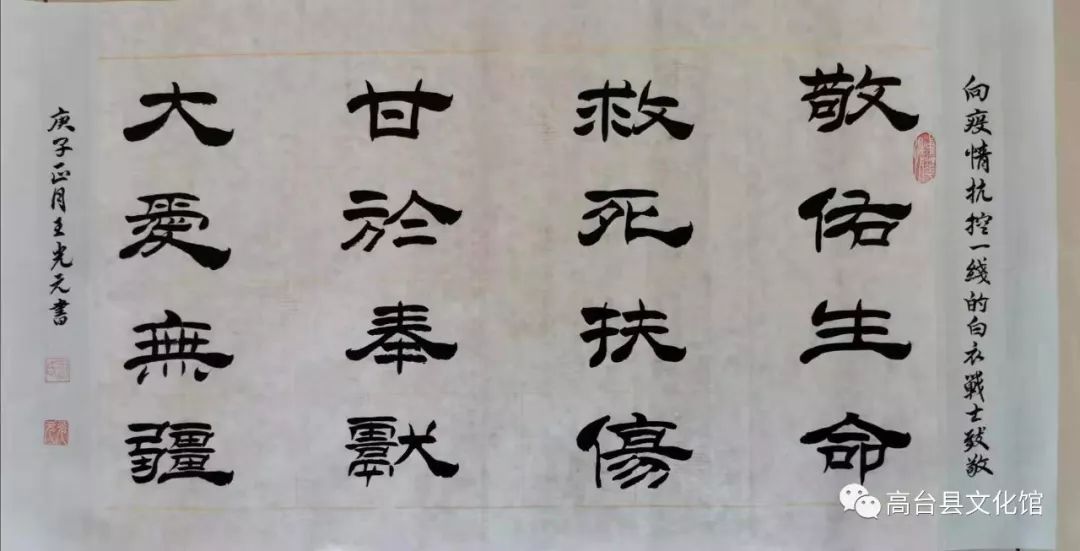 向疫情抗控一线的白衣戰士致敬
敬佑生命
救死扶傷
甘於奉獻
大愛無疆
庚子正月王光元書
高台县文化馆